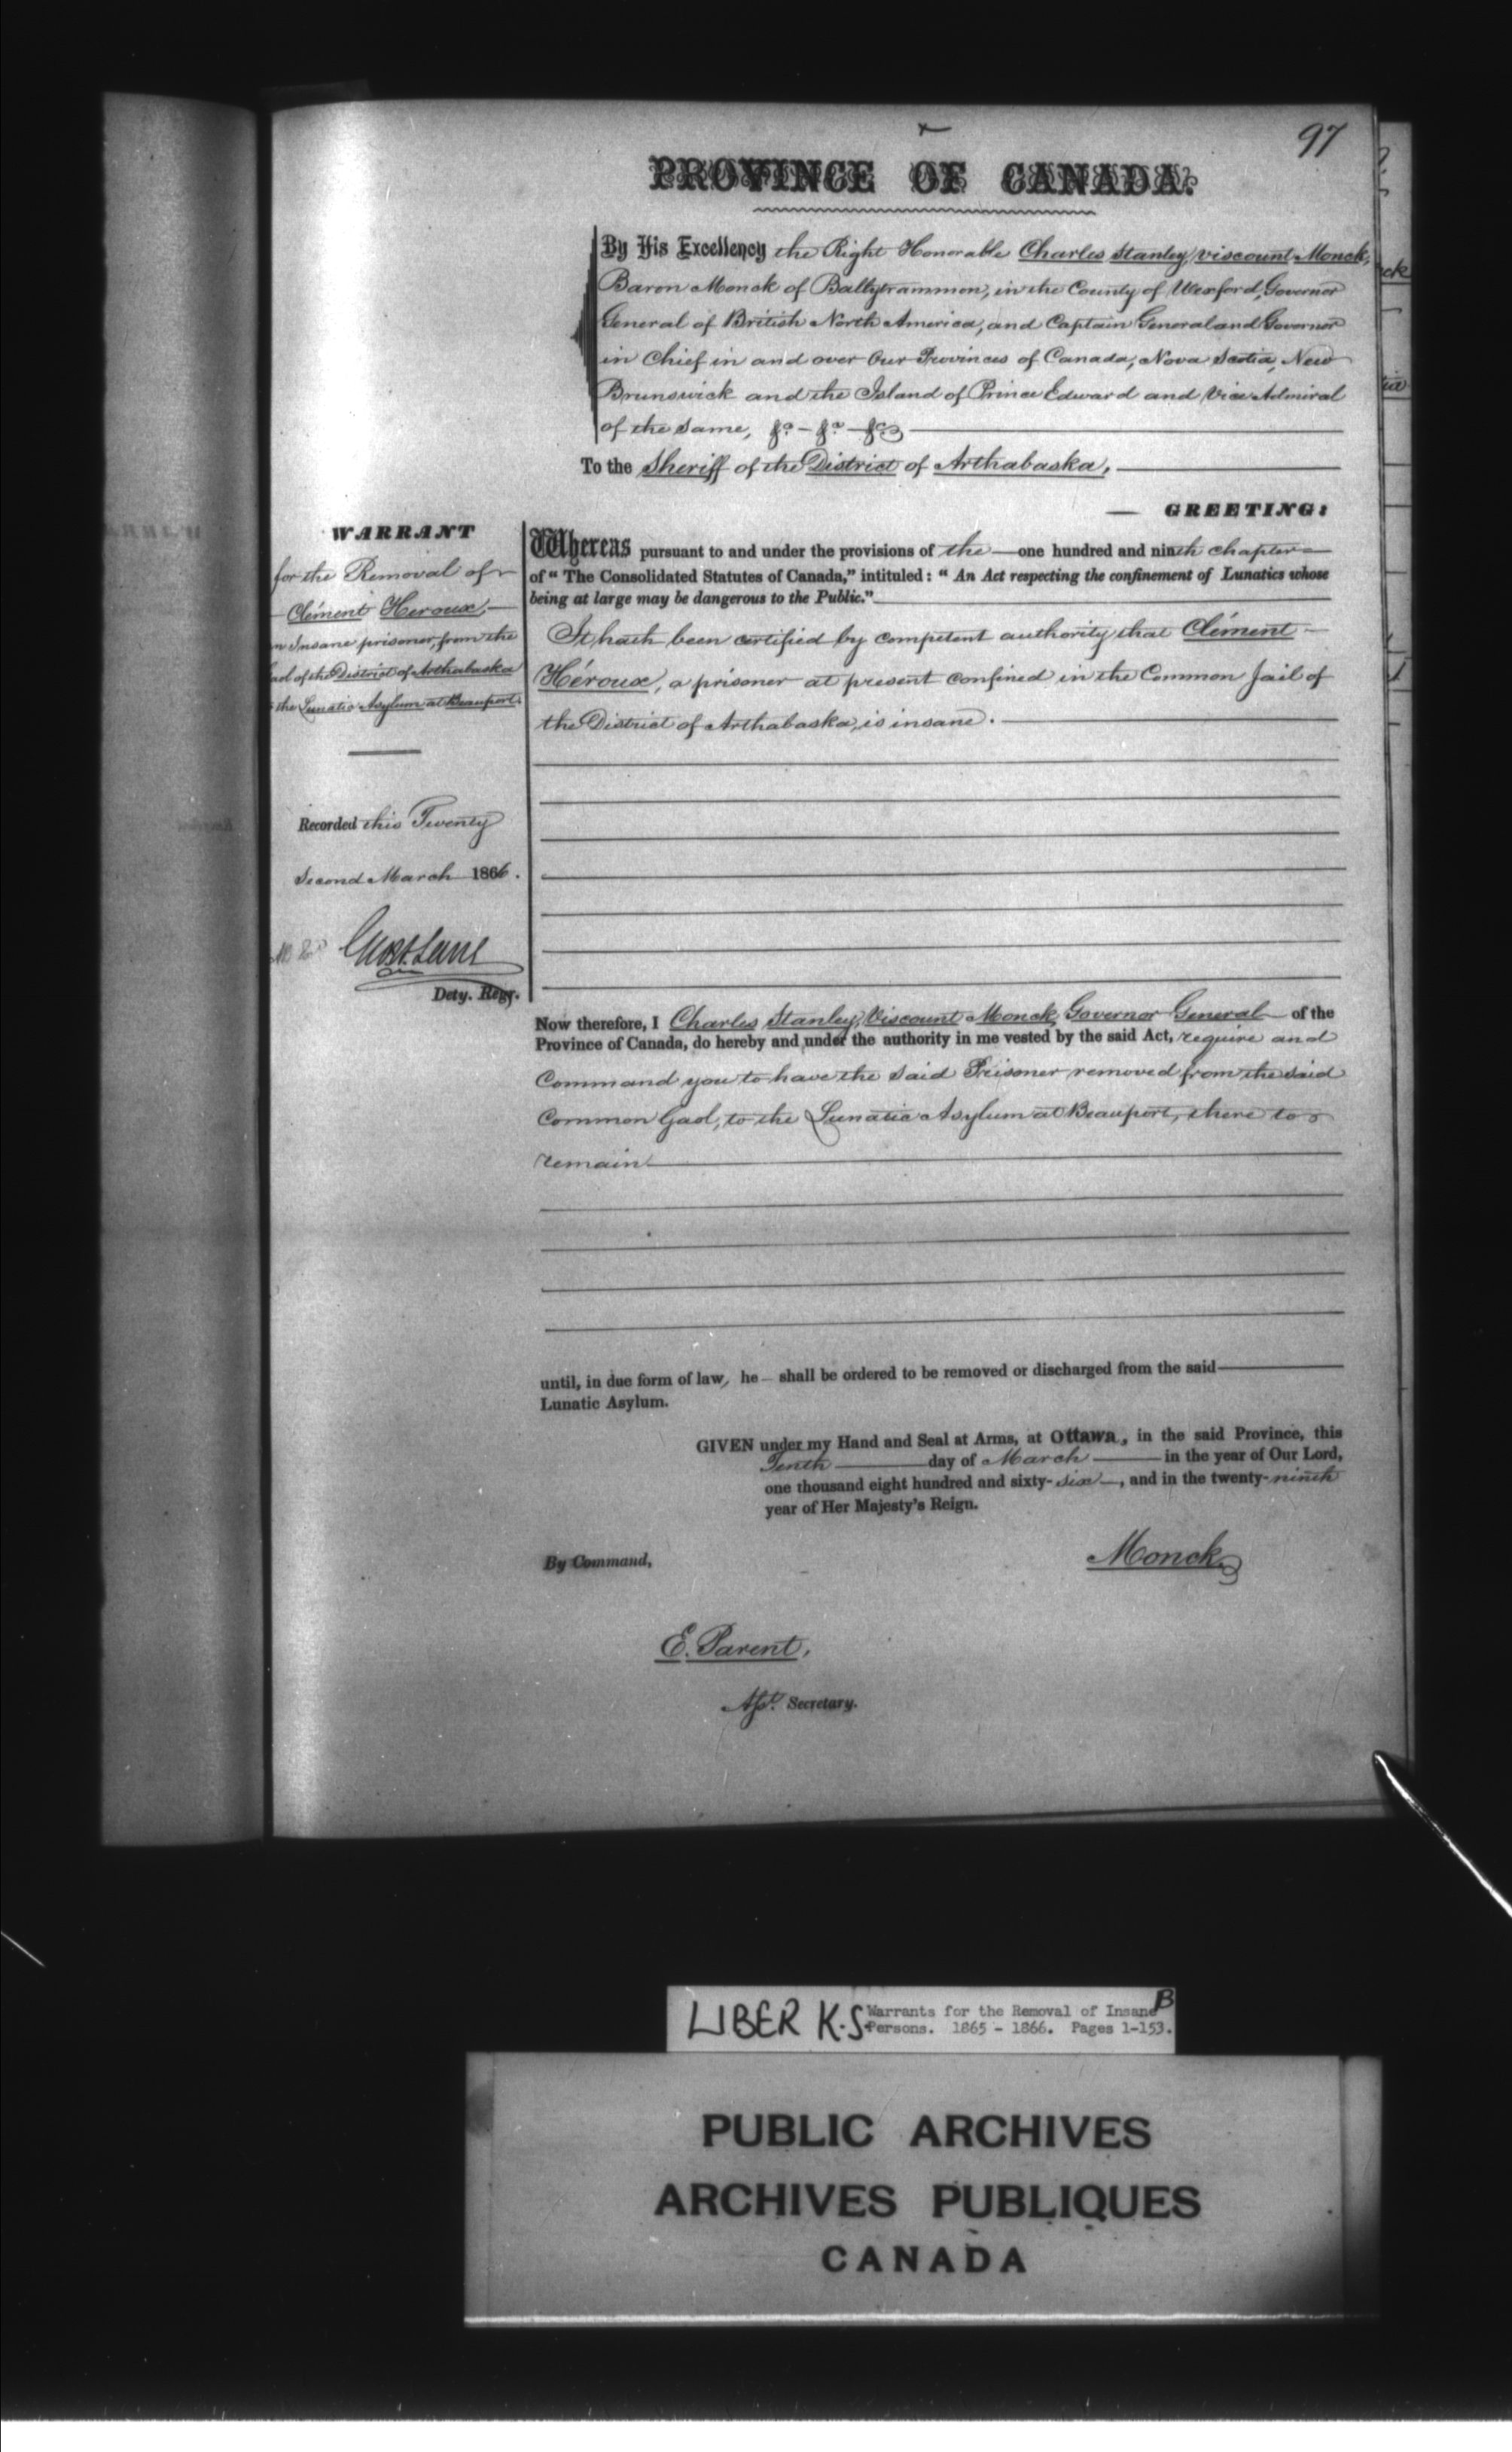 97
PROVINCE OF CANADA.
By His Excellency the Right Honorable Charles Stanley, Viscount Monck,
Baron Monck of Ballytrammon, in the County of Wexford, Governor
General of British North America, and Captain General and Governor
in Chief in and over Our Provinces of Canada, Nova Scotia, New
Brunswick and the Island of Prince Edward and Vice Admiral
of the same, &a - &a - &c
To the Sheriff of the District of Arthabaska,
GREETING:
WARRANT
for the Removal of
Clément Heroux,
n Insane prisoner, from the
aol of the District of Arthabaska
the Lunatic Asylum at Beauport.
Recorded this Twenty
Second March 1866.
Dety. Regr.
Whereas pursuant to and under the provisions of the — one hundred and ninth chapter
of "The Consolidated Statutes of Canada," intituled: "An Act respecting the confinement of Lunatics whose
being at large may be dangerous to the Public."
It hath been certified by competent authority that Clément
Héroux, a prisoner at present confined in the Common Jail of
the District of Arthabaska, is insane.
Now therefore, I Charles Stanley, Viscount Monck, Governor General of the
Province of Canada, do hereby and under the authority in me vested by the said Act, require and
Command you to have the said Prisoner removed from the said
Common Gaol, to the Lunatic Asylum at Beauport, there to
remain
until, in due form of law, he shall be ordered to be removed or discharged from the said
Lunatic Asylum.
GIVEN under my Hand and Seal at Arms, at Ottawa, in the said Province, this
Tenth day of March in the year of Our Lord,
one thousand eight hundred and sixty-six, and in the twenty-ninth
year of Her Majesty's Reign.
By Command,
Monck
E. Parent,
Asst. Secretary.
LIBER K.S. Warrants for the Removal of Insane B
Persons. 1865 - 1866. Pages 1-153.
PUBLIC ARCHIVES
ARCHIVES PUBLIQUES
CANADA